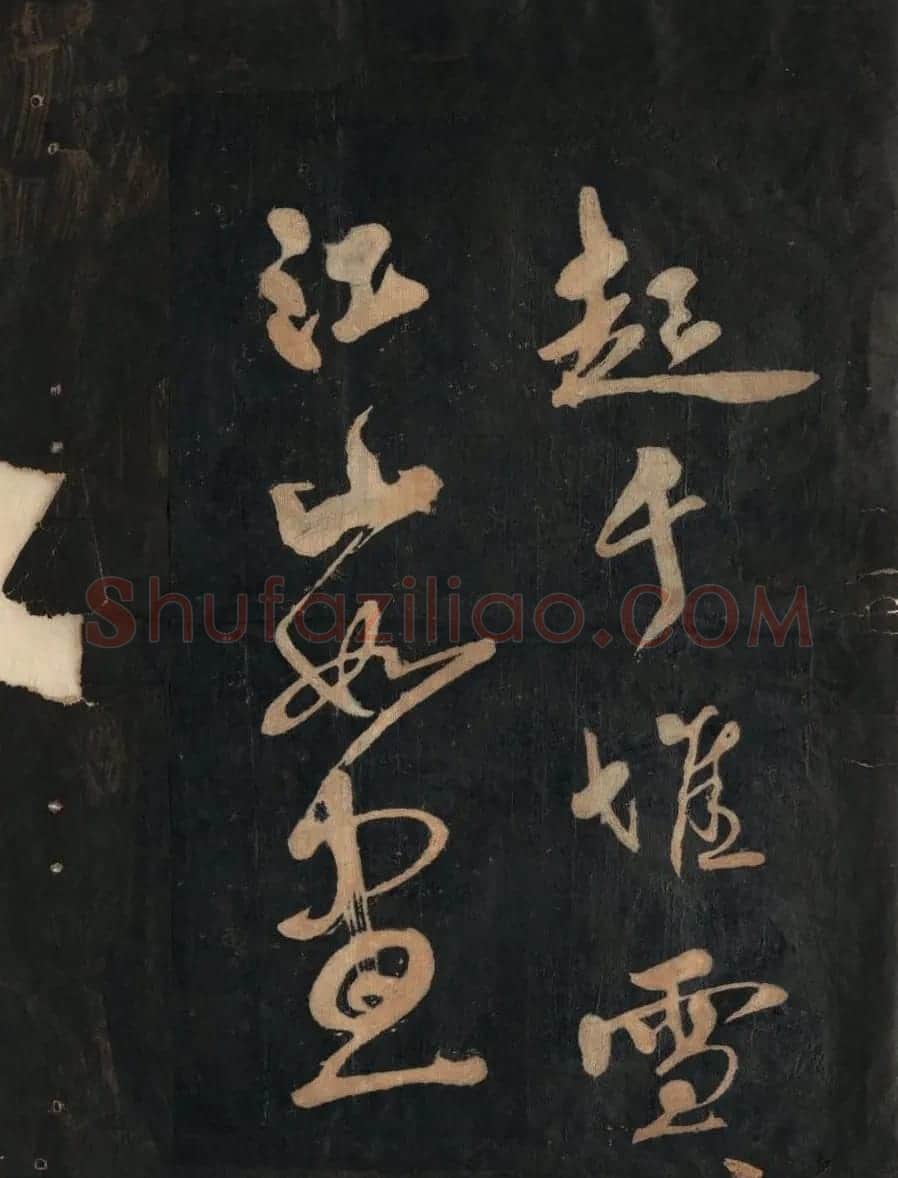 起千堆雪
江山如畫
Shufaziliao.COM